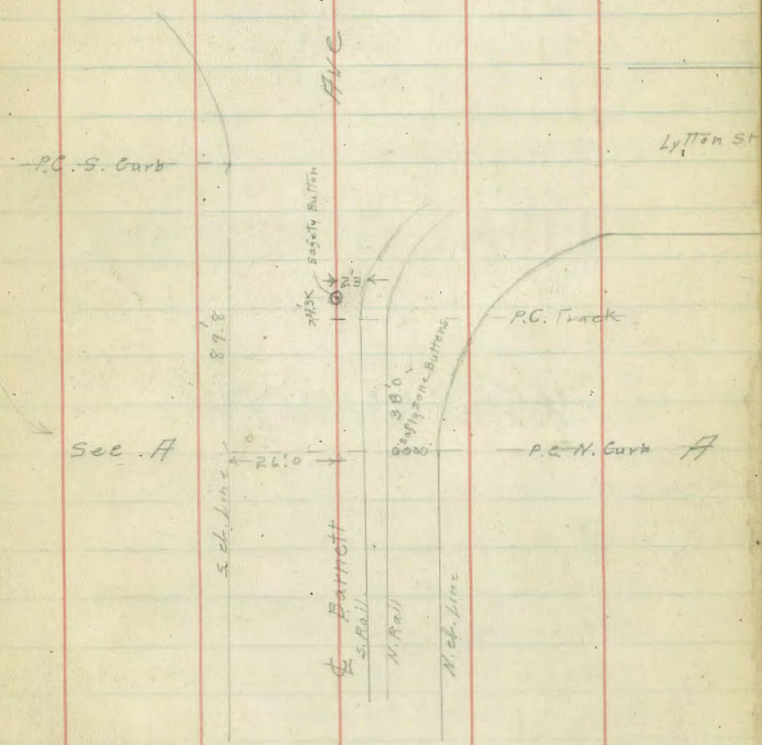 Ave
Lytton St
P.C. S. Curb
Safety Button
89.8
P.C. Track
38.0
Safty Zone Buttons
Sec. A
26.0
P.C. N. Curb A
S. cb. Line
℄ Barnett
S. Rail
N. Rail
N. cb. Line